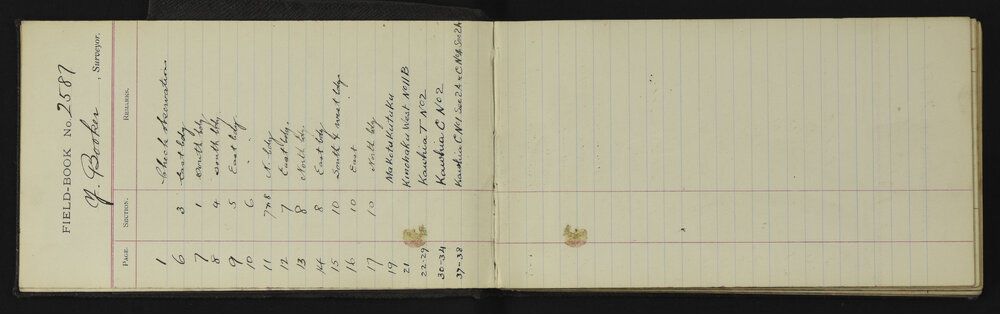 FIELD-BOOK No. 2587
Booker, Surveyor.
PAGE. SECTION. REMARKS.
1 Check observations
6 3 East bdy
7 1 South bdy
8 4 South bdy
9 5 East bdy
10 6 " "
11 7 & 8 N. bdy
12 7 East bdy.
13 8 North bdy
14 8 East bdy
15 10 South & west bdy.
16 10 East
17 10 North bdy
19 Maketukutuku
21 Kinohaku West No 11B
22-29 Kawhia T No 2
30-34 Kawhia C No 2
37-38 Kawhia C No 1 Sec 2A &